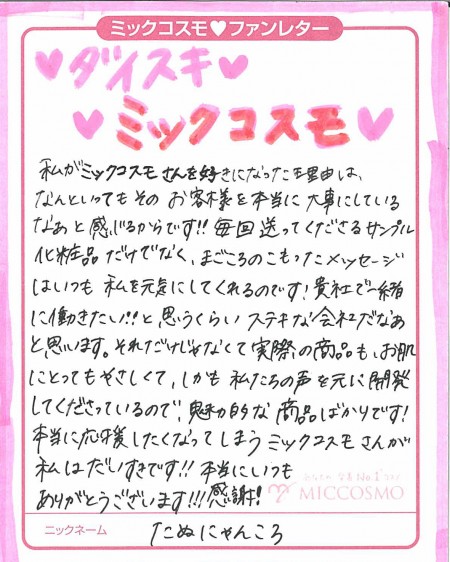 ミックコスモ♥ファンレター
♥ダイスキ♥
♥ミックコスモ♥
私がミックコスモさんを好きになった理由は、
なんといってもその お客様を本当に大事にしている
なあと感じるからです!! 毎回送ってくださるサンプル
化粧品だけでなく、まごころのこもったメッセージ
はいつも 私を元気にしてくれるのです! 貴社で一緒
に働きたい!! と思うくらい ステキな会社だなあ
と思います。それだけじゃなくて実際の商品も、お肌
にとってもやさしくて、しかも 私たちの声を元に開発
してくださっているので、魅力的な商品ばかりです!
本当に応援したくなってしまう ミックコスモさんが
私はだいすきです!! 本当にいつも
ありがとうございます!!! 感謝!
No.1
MICCOSMO
ニックネーム
たぬにゃんころ